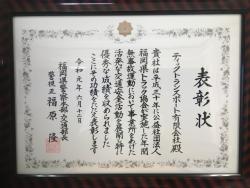 表彰状
ティストランスポート有限会社殿
貴社は平成三十年に公益社団法人
福岡県トラック協会が実施した年間
無事故運動において事業所をあげた
活発な交通安全活動を展開し特に
優秀な成績を収められました
ここにその功績をたたえ表彰します
令和元年六月十二日
福岡県警察本部交通部長
警視正 福原 隆